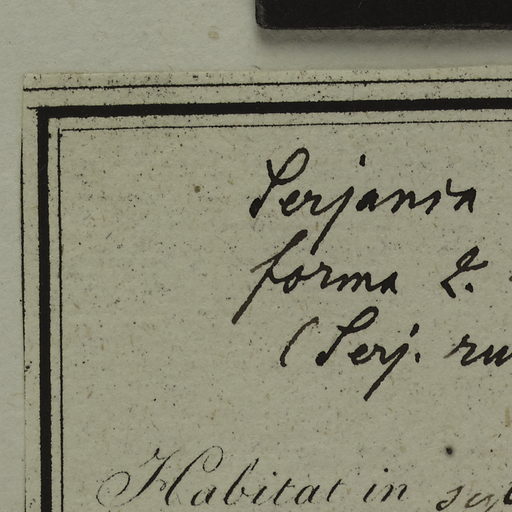 Serjania
forma 2.
(Serj.
Habitat in